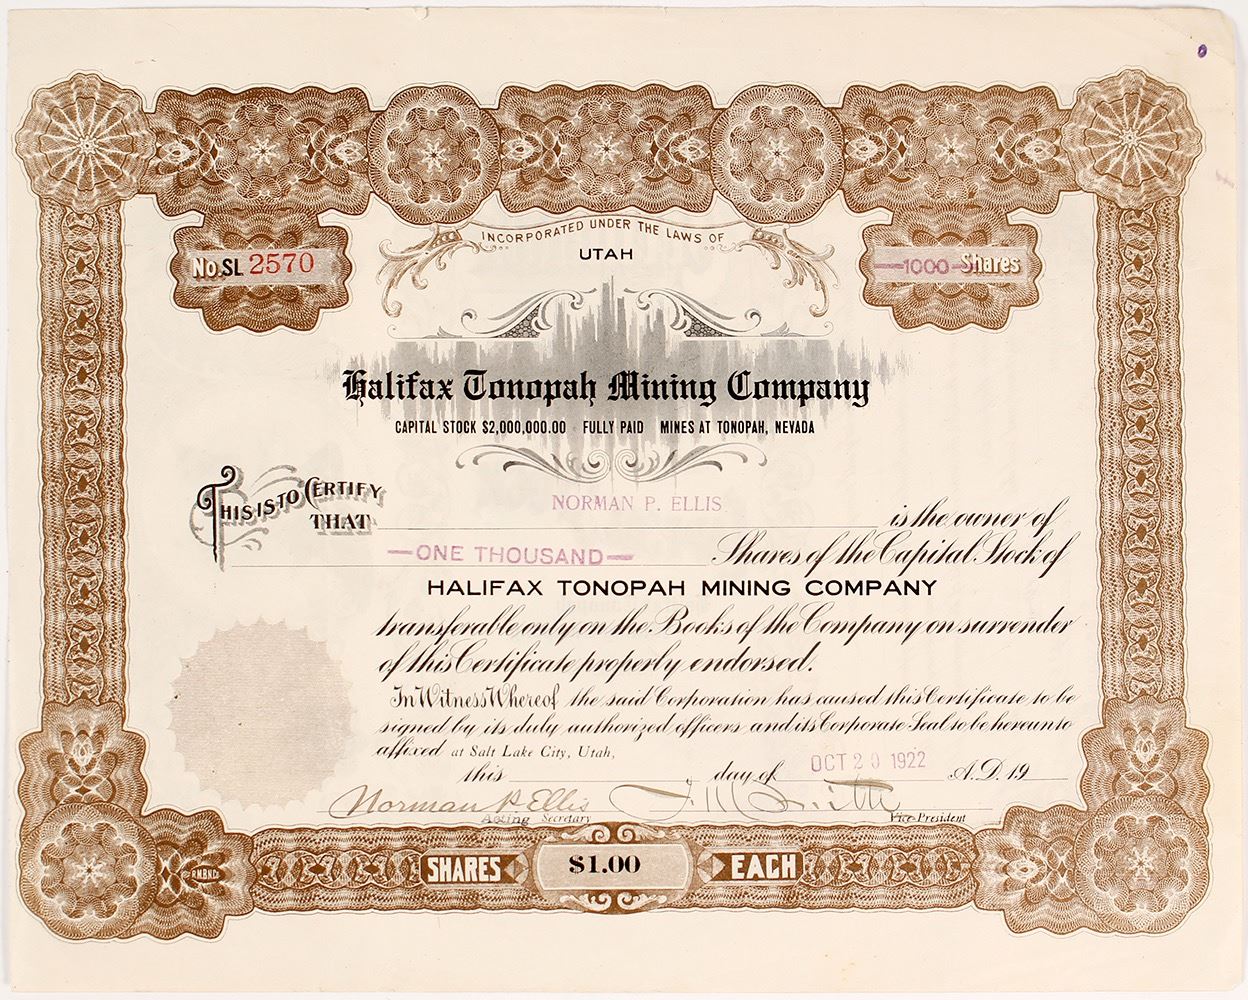 INCORPORATED UNDER THE LAWS OF
UTAH
No. SL 2570
—1000— Shares
Halifax Tonopah Mining Company
CAPITAL STOCK $2,000,000.00 FULLY PAID MINES AT TONOPAH, NEVADA
THIS IS TO CERTIFY
THAT NORMAN P. ELLIS is the owner of
—ONE THOUSAND— Shares of the Capital Stock of
HALIFAX TONOPAH MINING COMPANY
transferable only on the Books of the Company on surrender
of this Certificate properly endorsed.
In Witness Whereof the said Corporation has caused this Certificate to be
signed by its duly authorized officers and its Corporate Seal to be hereunto
affixed at Salt Lake City, Utah,
this day of OCT 20 1922 A.D. 19
Norman P Ellis
Acting Secretary Vice-President
SHARES $1.00 EACH